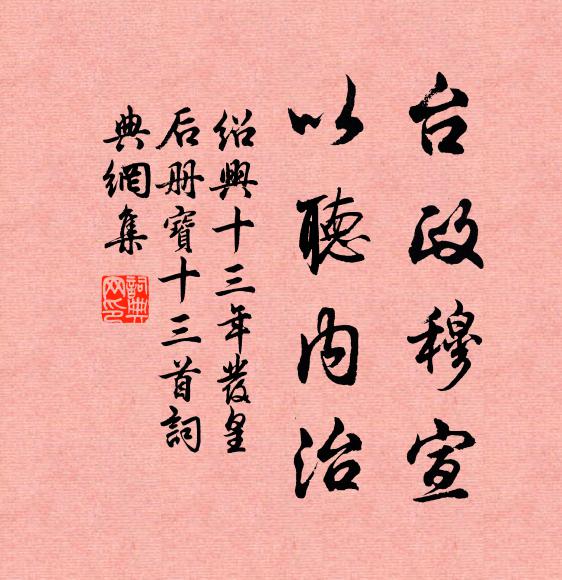 台政穆宣
以聽内治
绍興十三年發皇
后册寶十三首詞
典網集
詞典網印